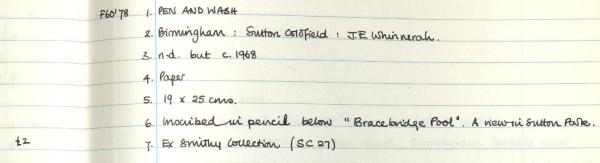 F60'78 1. PEN AND WASH
2. Birmingham : Sutton Coldfield : J.E Whinnerah.
3. n.d. but c. 1968
4. Paper
5. 19 x 25 cms.
6. Inscribed in pencil below "Bracebridge Pool". A view in Sutton Park.
£2 7. Ex Smithy Collection (SC 27)